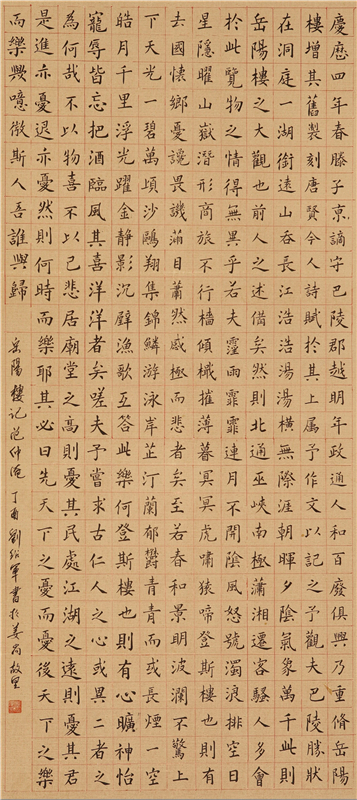 慶曆四年春滕子京謫守巴陵郡越明年政通人和百廢俱興乃重脩岳陽
樓增其舊製刻唐賢今人詩賦於其上属予作文以記之予觀夫巴陵勝狀
在洞庭一湖銜遠山吞長江浩浩湯湯橫無際涯朝暉夕陰氣象萬千此則
岳陽樓之大觀也前人之述備矣然則北通巫峽南極瀟湘遷客騷人多會
於此覽物之情得無異乎若夫霪雨霏霏連月不開陰風怒號濁浪排空日
星隱曜山嶽潛形商旅不行檣傾檝摧薄暮冥冥虎嘯猿啼登斯樓也則有
去國懷鄉憂讒畏譏滿目蕭然感極而悲者矣至若春和景明波瀾不驚上
下天光一碧萬頃沙鷗翔集錦鱗游泳岸芷汀蘭郁鬱青青而或長煙一空
皓月千里浮光躍金靜影沉璧漁歌互答此樂何登斯樓也則有心曠神怡
寵辱皆忘把酒臨風其喜洋洋者矣嗟夫予嘗求古仁人之心或異二者之
為何哉不以物喜不以己悲居廟堂之高則憂其民處江湖之遠則憂其君
是進亦憂退亦憂然則何時而樂耶其必曰先天下之憂而憂後天下之樂
而樂歟噫微斯人吾誰與歸
岳陽樓記范仲淹丁酉劉紹軍書於姜尚故里